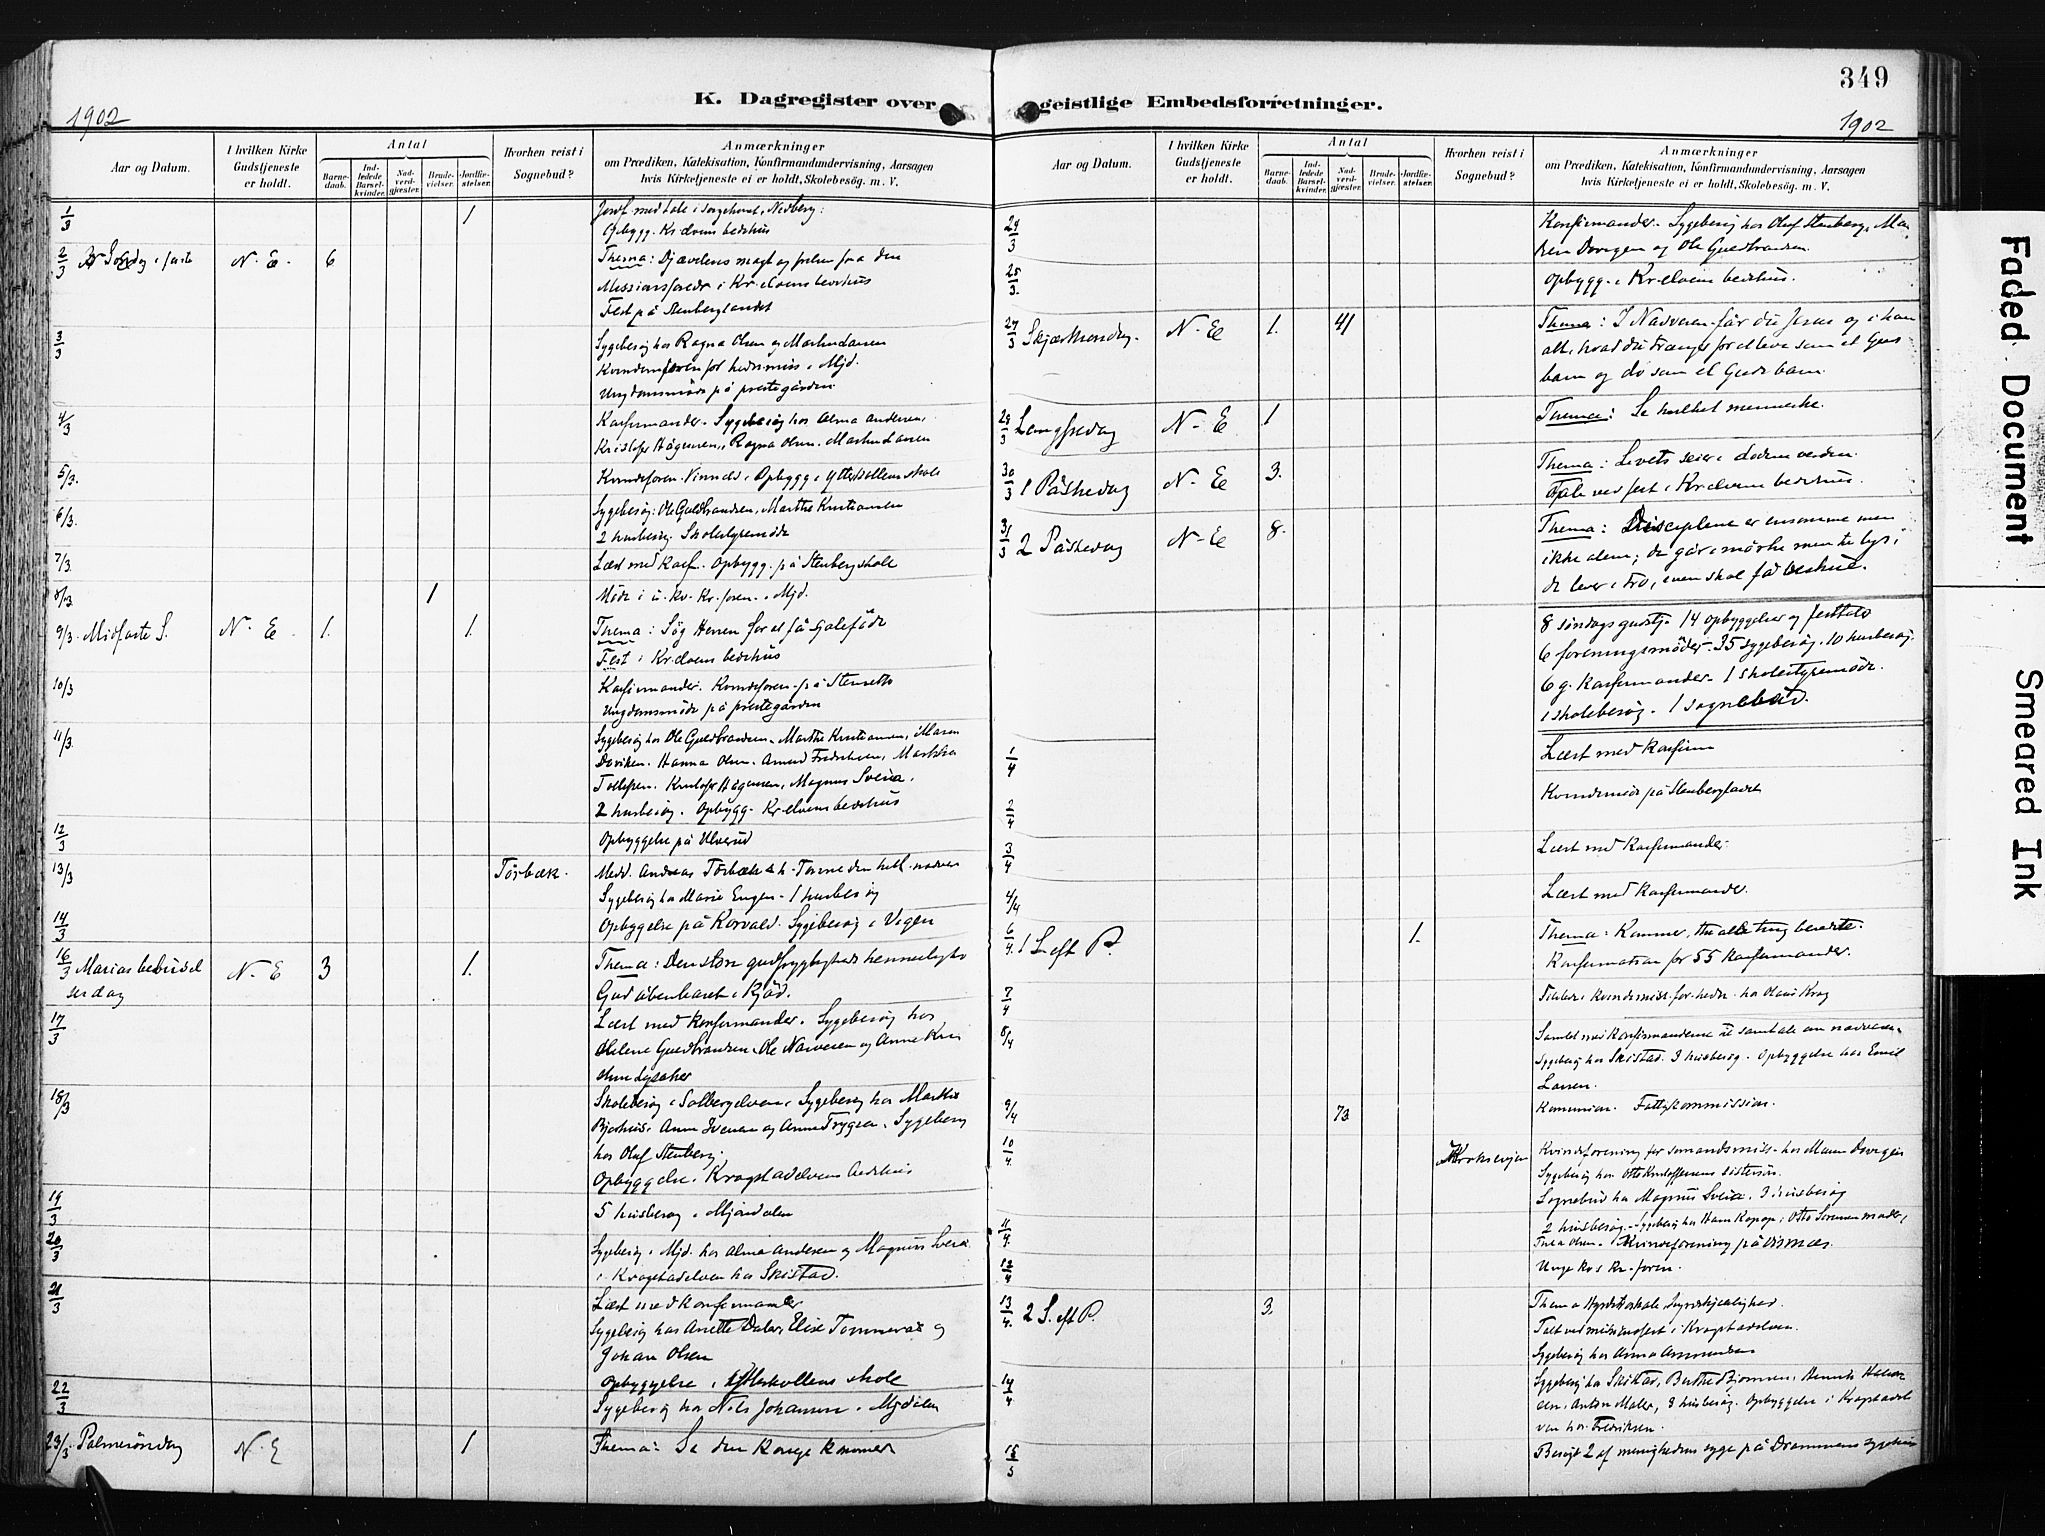 349
K. Dagregister over geistlige Embedsforretninger.
1902
1902
Aar og Datum.
I hvilken Kirke Gudstjeneste er holdt.
Antal
Barnedaab.
Indledede Barselkvinder.
Nadverdgjester.
Brudevielser.
Jordfæstelser.
Hvorhen reist i Sognebud?
Anmærkninger
om Prædiken, Katekisation, Konfirmandundervisning, Aarsagen
hvis Kirketjeneste ei er holdt, Skolebesøg. m. V.
1/3 1 Jordf. med tale i sørgehuset, Nedberg.
Opbygg. Kr.elvens bedehus
2/3 Søndag i faste N. E. 6 Thema: Djævelens magt og frelsen fra den
Missionsforedr i Kr.elvens bedehus
Fest på Stenberglandet
3/3 Sygebesøg hos Ragna Olsen og Martin Larsen
Kvindeforen for hedemiss i Mjd.
Ungdomsmøde på prestegården
4/3 Konfirmander. Sygebesøg hos Alma Andersen,
Kristofer Hågensen, Ragna Olsen. Martin Larsen
5/3. Kvindeforen. Vinnæs. Opbygg i Ytterkollens skole
6/3. Sygebesøg: Ole Guldbrandsen, Marthe Kristiansen
2 husbesøg. Skolestyremøde
7/3. Læst med konf. Opbygg. på Stenberg skole
8/3 1 Møde i u. kv. Kr. foren. i Mjd.
9/3. Midfaste S. N. E. 1. 1. Thema: Søg Herren for at få sjæleføde
Fest i Kr.elvens bedehus
10/3 Konfirmander. Kvindeforen. på Stenseth
Ungdomsmøde på prestegården
11/3. Sygebesøg hos Ole Guldbrandsen. Marthe Kristiansen, Maren
Doviken. Hanna Olsen. Amund Fredriksen, Martha
Tollefsen. Kristofer Hågensen, Magnus Sveia.
2 husbesøg. Opbygg. Kr.elvens bedehus
12/3 Opbyggelse på Ulverud
13/3 Tørbæk. Medd. Andreas Tørbæk & h. Tomine den hell. nadver
Sygebesøg hos Marie Engen. 1 husbesøg
14/3 Opbyggelse på Korvald. Sygebesøg i Vegen
16/3 Marias bebudelsesdag N. E 3 1. Thema: Den store gudfrygtigheds hemmelighed
Gud åbenbaret i Kjød.
17/3 Læst med konfirmander. Sygebesøg hos
Helene Guldbrandsen. Ole Narvesen og Anne Kri
18/3 Skolebesøg i Solbergelven. Sygebesøg hos Marthe
Bjørhus, Anne Iversen og Anne Trygsen. Sygebesøg
hos Oluf Stenberg.
Opbyggelse. Kragstadelvens bedehus
19/3 5 husbesøg i Mjøndalen
20/3 Sygebesøg i Mjd. hos Alma Andersen og Magnus Sveia
i Kragstadelven hos Skistad.
21/3 Læst med konfirmander
Sygebesøg hos Anette Daler, Elise Tommerås og
Johan Olsen
Opbyggelse i Ytterkollens skole
22/3 Sygebesøg hos Nils Johansen i Mjdalen
23/3. Palmesøndag N. E 1 Thema: Se din konge kommer
Aar og Datum.
I hvilken Kirke Gudstjeneste er holdt.
Antal
Barnedaab.
Indledede Barselkvinder.
Nadverdgjester.
Brudevielser.
Jordfæstelser.
Hvorhen reist i Sognebud?
Anmærkninger
om Prædiken, Katekisation, Konfirmandundervisning, Aarsagen
hvis Kirketjeneste ei er holdt, Skolebesøg. m. V.
24/3 Konfirmander. Sygebesøg hos Oluf Stenberg, Maren Dovigen og Ole Guldbrandsen
25/3. Opbygg. i Kr.elvens bedehus.
27/3 Skjærthorsdag. N. E 1. 41 Thema: I Nadveren får du Jesus og i ham
alt, hvad du trænger for at leve som et Guds
barn og dø som et Guds barn.
28/3 Langfredag N. E 1 Thema: Se hvilket menneske.
30/3 1 Påskedag N. E 3. Thema: Livets seier i dødens verden.
Tale ved fest i Kr.elvens bedehus.
31/3 2 Påskedag N. E 8. Thema: Disciplene er ensomme men
ikke alene; de går i mørke men til lys;
de lever i tro, men skal få beskue.
8 søndags gudstj. 14 opbyggelser og festtale
6 foreningsmøder. 35 sygebesøg. 10 husbesøg.
6 g. konfirmander. 1 skolestyremøde.
1 skolebesøg. 1 sognebud.
1/4 Læst med konfirm
2/4 Kvindemøde på Stenberglandet
3/4 Læst med konfirmander.
4/4 Læst med konfirmander.
6/4. 1 S. eft P. 1. Thema: Kommer, thi alle ting beredte.
Konfirmation for 55 konfirmander.
7/4 Taler i kvindemiss. for hedn. hos Olaus Krog
8/4 Samlet med konfirmanderne til samtale om nadveren.
Sygebesøg hos Skistad. 3 husbesøg. Opbyggelse hos Emil
Larsen.
9/4 73 Kommunion. Fattigkommission.
10/4. Krokseien Kvindeforening for sømandsmiss. hos Maren Dovigen
Sygebesøg hos Otto Kristoffersens søstersøn.
Sognebud hos Magnus Sveia. 3 husbesøg
11/4. 2 husbesøg. Sygebesøg hos Hans Kopop, Otto Sørensens moder,
Thea Olsen. Kvindeforening på Visnæs.
12/4 Unge kvs Kr. foren.
13/4. 2 S. eft P. 3. Thema
Talt ved missionsfest i Kragstadelven.
Sygebesøg hos Anna Amundsen
14/4 Sygebesøg hos Skistad, Berthe Bjørnsen,
Anton Moler, 3 husbesøg. Opbyggelse i Kragstadelven hos Fredriksen.
15/3 Besøgt 2 af menighedens syge på Drammens sygehus
Faded Document
Smeared Ink